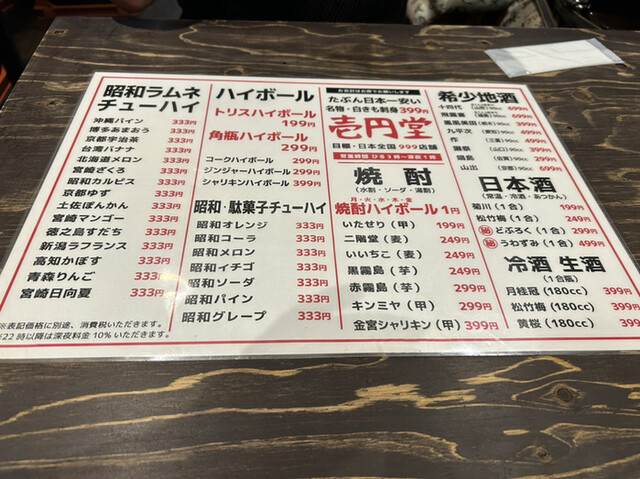 昭和ラムネ
チューハイ
沖縄パイン 333円
博多あまおう 333円
京都宇治茶 333円
台湾バナナ 333円
北海道メロン 333円
宮崎ざくろ 333円
昭和カルピス 333円
京都ゆず 333円
土佐ぽんかん 333円
宮崎マンゴー 333円
徳之島すだち 333円
新潟ラフランス 333円
高知かぼす 333円
青森りんご 333円
宮崎日向夏 333円
※表記価格に別途、消費税いただきます。
※22時以降は深夜料金10%いただきます。
ハイボール
トリスハイボール
199円
角瓶ハイボール
299円
コークハイボール 299円
ジンジャーハイボール 299円
シャリキンハイボール 399円
昭和・駄菓子チューハイ
昭和オレンジ 333円
昭和コーラ 333円
昭和メロン 333円
昭和イチゴ 333円
昭和ソーダ 333円
昭和パイン 333円
昭和グレープ 333円
お会計はお席でお願いします
たぶん日本一安い
名物・白きも刺身399円
壱円堂
目標・日本全国999店舗
営業時間 ひる3時〜深夜1時
焼酎
(水割・ソーダ・湯割)
月・火・水・木・金
焼酎ハイボール1円
いたせり(甲) 199円
二階堂(麦) 249円
いいちこ(麦) 249円
黒霧島(芋) 249円
赤霧島(芋) 299円
キンミヤ(甲) 299円
金宮シャリキン(甲) 399円
希少地酒
十四代 699円
飛露喜 699円
鳳凰美田 399円
九平次 499円
作
田酒
鍋島
山出
日本酒
(常温・冷酒・あつかん)
菊川(1合) 199円
松竹梅(1合) 249円
どぶろく(1合) 299円
うわずみ(1合) 499円
冷酒 生酒
(1合瓶)
月桂冠(180cc) 399円
松竹梅(180cc) 399円
黄桜(180cc) 399円